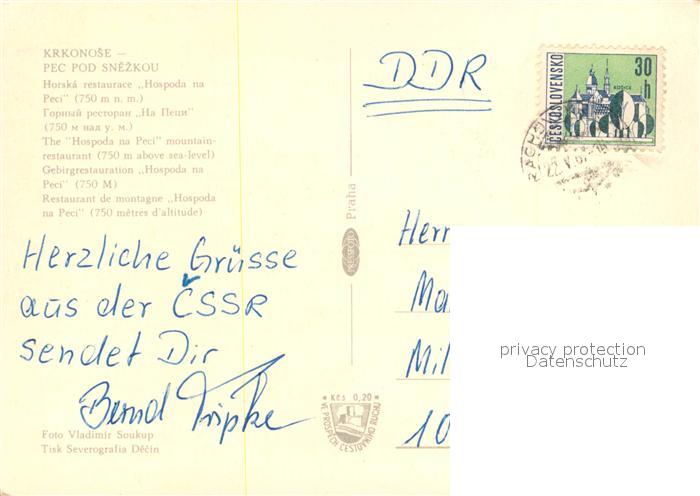 KRKONOŠE —
PEC POD SNĚŽKOU
Horská restaurace „Hospoda na
Peci" (750 m n. m.)
Горный ресторан „На Пеци"
(750 м над у. м.)
The "Hospoda na Peci" mountain-
restaurant (750 m above sea-level)
Gebirgrestauration „Hospoda na
Peci" (750 M)
Restaurant de montagne „Hospoda
na Peci" (750 mètres d'altitude)
Herzliche Grüsse
aus der ČSSR
sendet Dir
Bernd
Foto Vladimír Soukup
Tisk Severografia Děčín
Praha
PRESSFOTO
Kčs 0,20
VE PROSPĚCH CESTOVNÍHO RUCHU
DDR
ČESKOSLOVENSKO
30
h
KOŠICE
22.V.6
Herr
Ma
Mil
10
privacy protection
Datenschutz